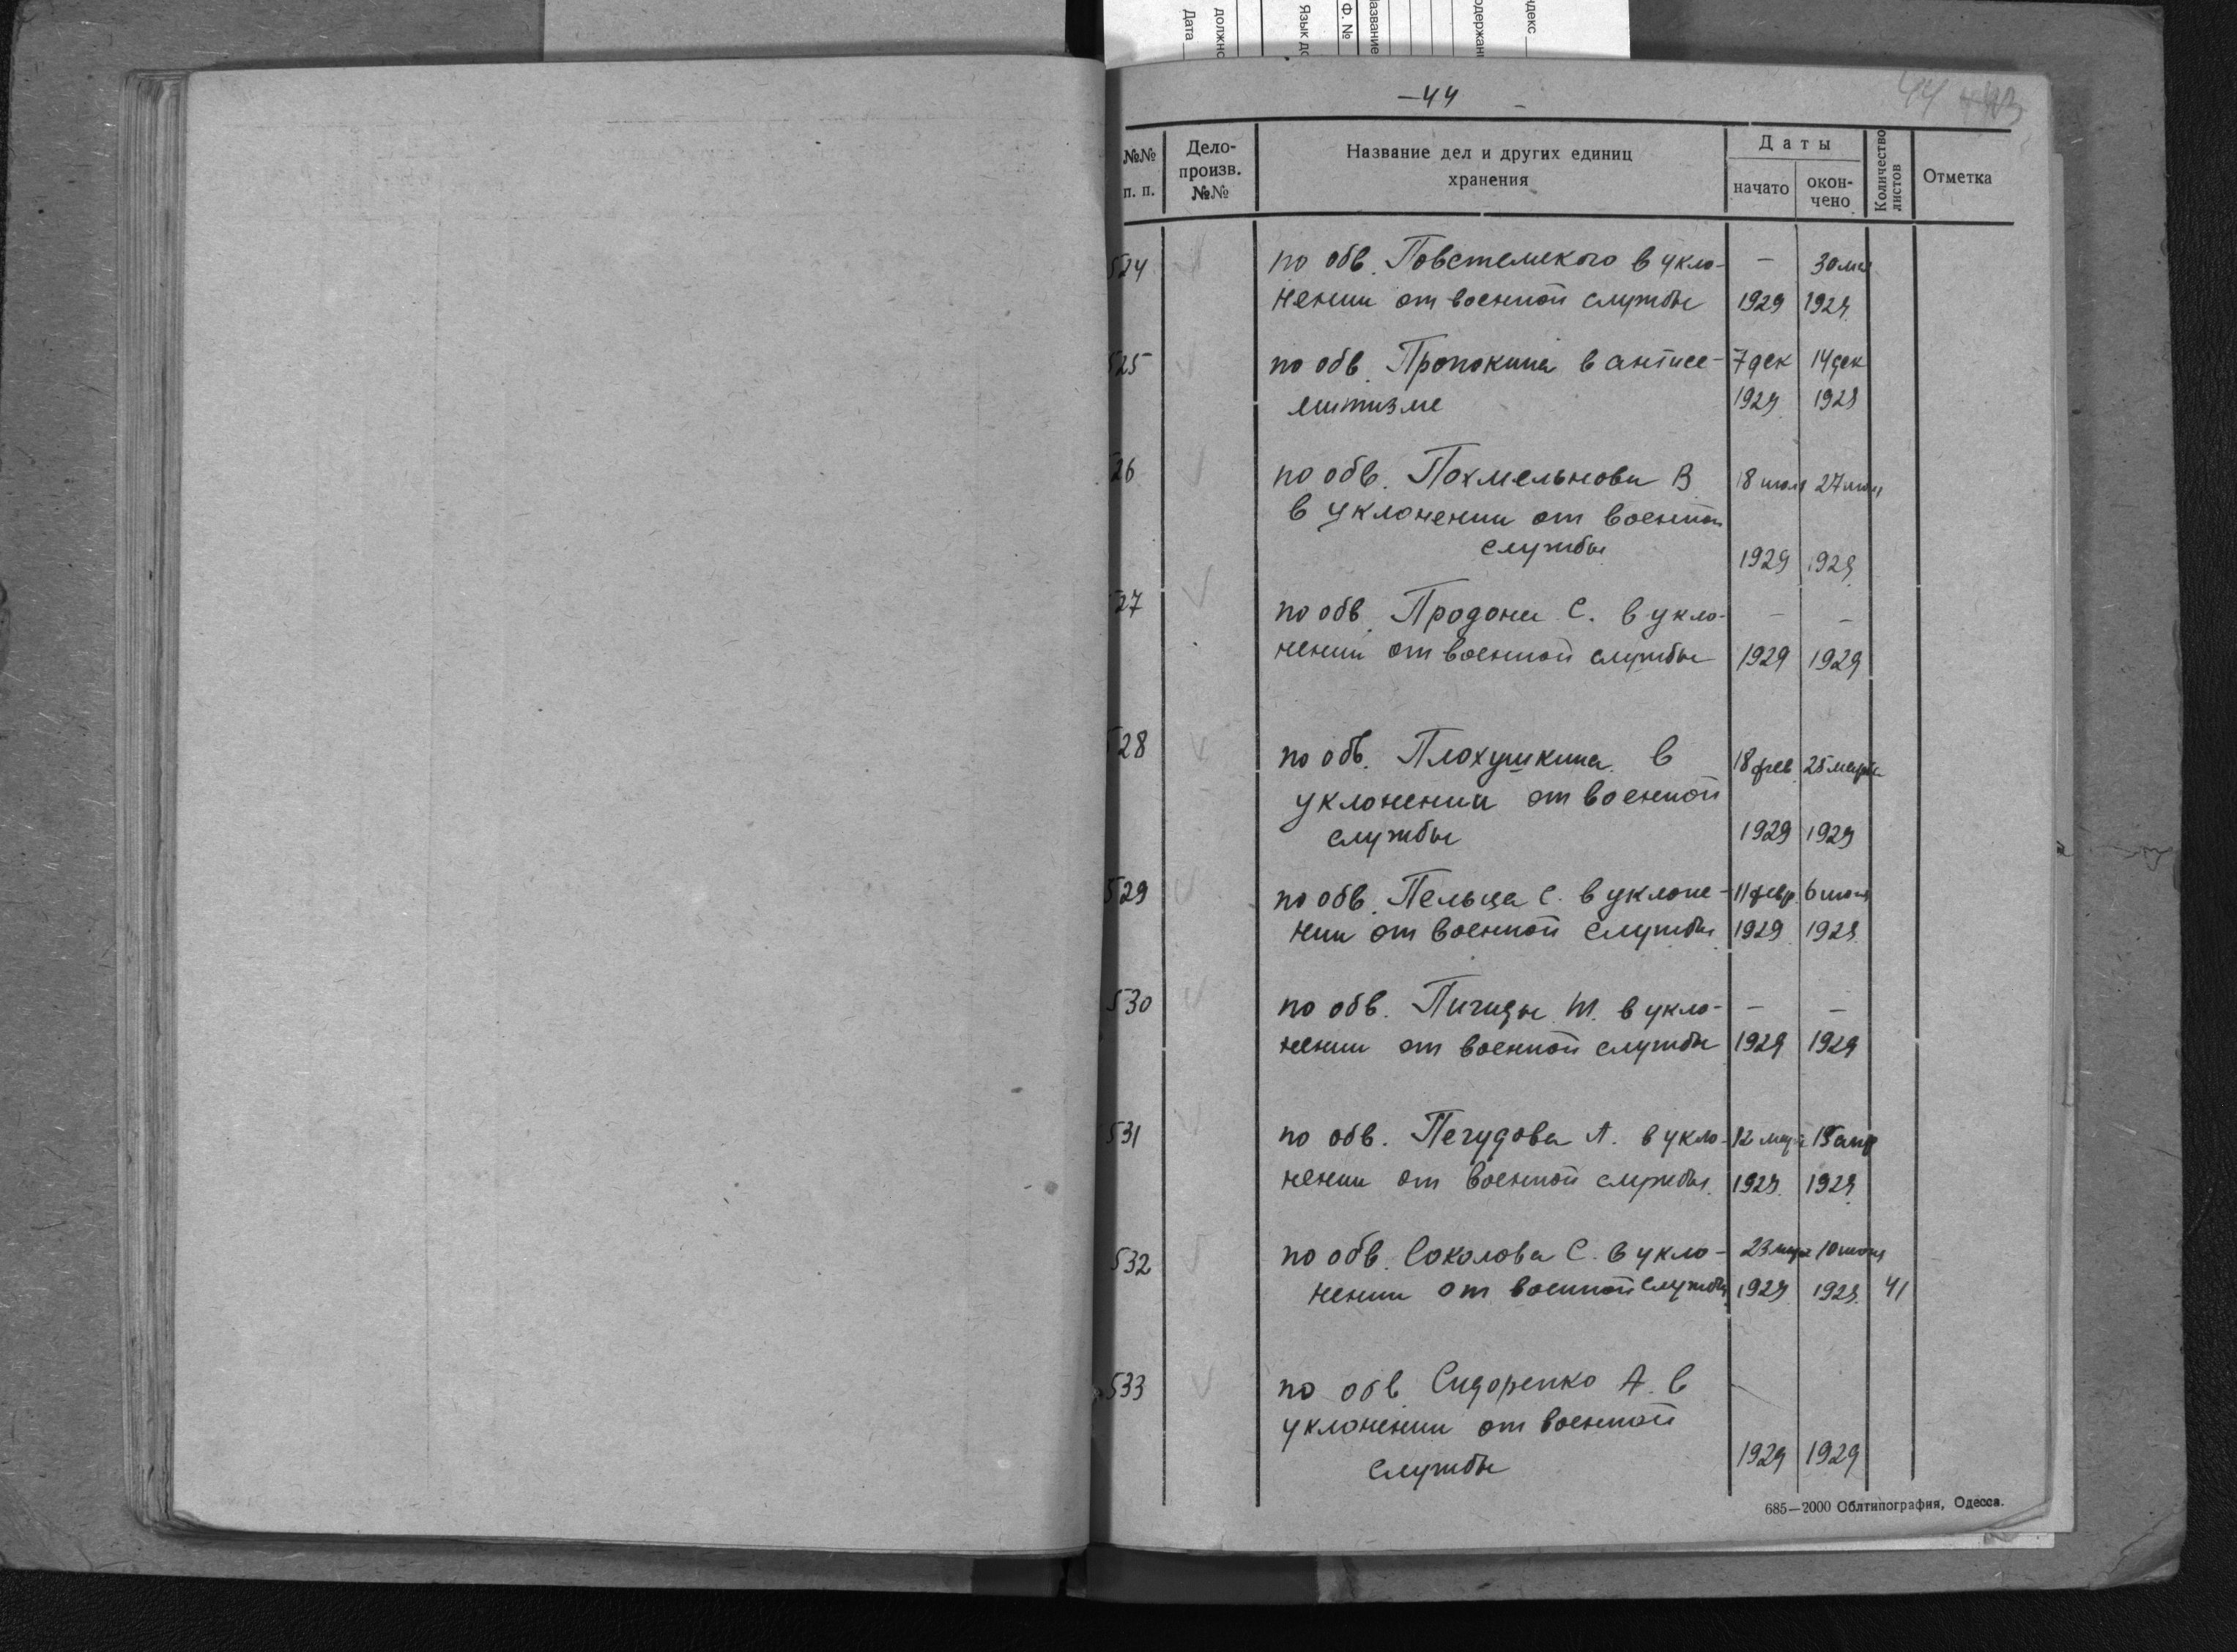 Дата
должно
Язык до
Ф. №
название
держан
декс
—44 —
44
№№ п. п.
Дело-
произв.
№№
Название дел и других единиц
хранения
Даты
начато
окон-
чено
Количество
листов
Отметка
524 по обв. укло- — 30
нении от военной службы 1929 1929
525 по обв. Пропокина в антисе- 7 дек 14 дек
митизме 1929 1929
526 по обв. Похмельнова В. 18 июля 27
в уклонении от военной
службы 1929 1929
527 по обв. Продона С. в укло- — —
нении от военной службы 1929 1929
528 по обв. Плохушкина в 18 фев 25 марта
уклонении от военной
службы 1929 1929
529 по обв. Пельца С. в уклоне- 11 февр. 6
нии от военной службы 1929 1929
530 по обв. Пичиды в укло- — —
нении от военной службы 1929 1929
531 по обв. Печудова А. в укло- 12 15 апр
нении от военной службы. 1929 1929
532 по обв. Соколова С. в укло- 23 10
нении от военной службы 1929 1929 41
533 по обв Сидоренко А. в —
уклонении от военной
службы 1929 1929
685—2000 Облтипография, Одесса.